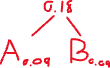 0.18
A0.09 B0.09